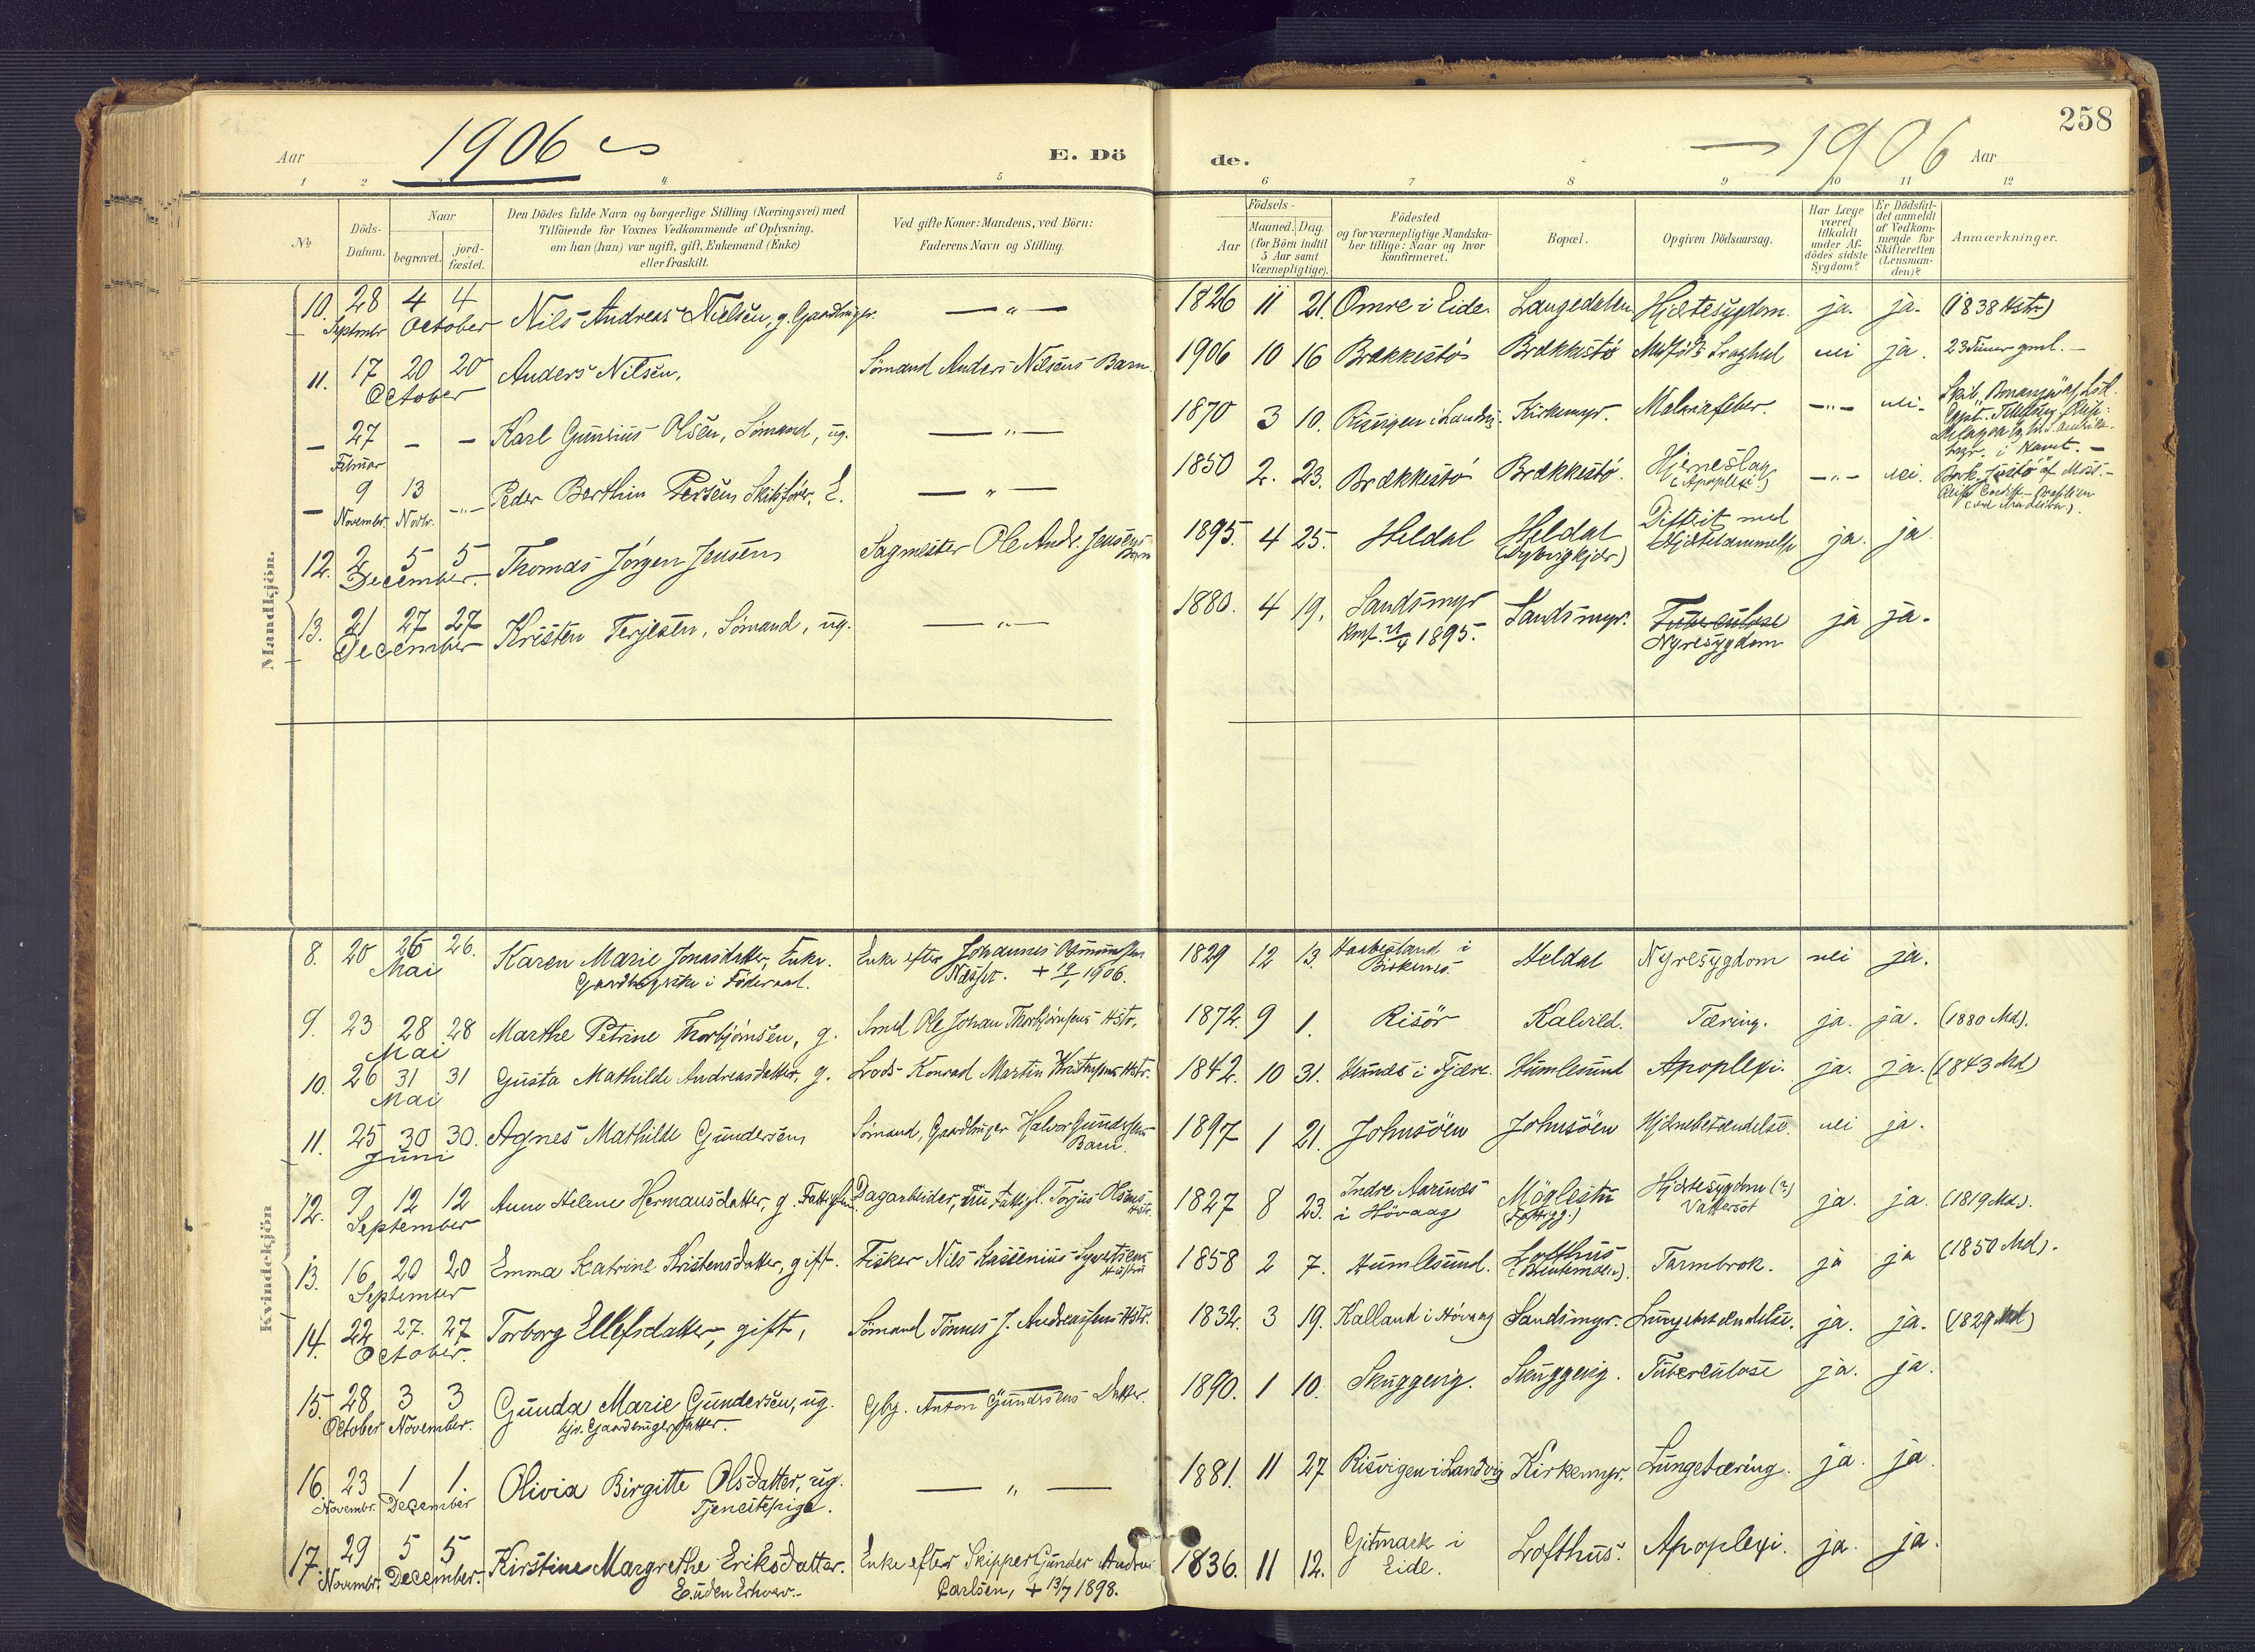 258
Aar 1906
E. Dö
de.
1906 Aar
1 2 3 4 5 6 7 8 9 10 11 12
№
Döds-
Datum.
Naar
begravet.
jord-
fæstet.
Den Dödes fulde Navn og borgerlige Stilling (Næringsvei) med
Tilföiende for Voxnes Vedkommende af Oplysning,
om han (hun) var ugift, gift, Enkemand (Enke)
eller fraskilt.
Ved gifte Koner: Mandens, ved Börn:
Faderens Navn og Stilling.
Födsels-
Aar
Maaned.
Dag.
(for Börn indtil
5 Aar samt
Værnepligtige).
Födested
og for værnepligtige Mandska-
ber tillige: Naar og hvor
konfirmeret.
Bopæl.
Opgiven Dödsaarsag.
Har Læge
været
tilkaldt
under Af-
dödes sidste
Sygdom?
Er Dödsfal-
det anmeldt
af Vedkom-
mende for
Skifteretten
(Lensman-
den)?
Anmærkninger.
Mandkjön.
10. 28 4 4 Nils Andreas Nielsen, g. Gaardbruger. — " — 1826 11 21. Omre i Eide. Langedalen Hjertesygdom. ja. ja. (1838 Hstr.)
September October
11. 17 20 20 Anders Nilsen, Sömand Anders Nilsens Barn. 1906 10 16 Brækkestö Brækkestö nei ja. 23 Timer gml. —
October
— 27 — — Karl Gunerius Olsen, Sömand, ug. — " — 1870 3 10. Risvigen i Landvig. Kirkemyr. Malariafeber. — " — nei.
Februar
— 9 13 — " — Peder Berthin Persen Skibsförer, E. — " — 1850 2. 23. Brækkestö Brækkestö. Hjerneslag — " — nei. Bark "Justö" af Moss. —
Novembr. Novbr. (Apoplexi)
12. 2 5 5 Thomas Jörgen Jensen Sagmester Ole Andr. Jensens Barn 1895. 4 25. Heldal Heldal Difterit med ja. ja
December.
13. 21 27 27 Kristen Terjesen, Sömand, ug. — " — 1880. 4 19. Sandsmyr Sandsmyr. Tuberculose ja ja.
December Konf. 21/4 1895. Nyresygdom
Kvindekjön
8. 20 26 26. Karen Marie Jonasdatter, Enke. Enke efter Johannes 1829 12 13. i Heldal Nyresygdom nei ja.
Mai i Föderaad. 1906. Birkenes
9. 23 28 28 Marthe Petrine Thorbjörnsen, g. Smed Ole Johan Thorbjörnsens Hstr. 1872. 9 1. Risör Kalvild. Tæring. ja. ja. (1880 Md).
Mai
10. 26 31 31 Gusta Mathilde Andreasdatter, g. Lods Konrad Martin Kristensens Hstr. 1842. 10 31. i Fjære. Humlesund Apoplexi. ja. ja. (1843 Md)
Mai
11. 25 30 30. Agnes Mathilde Gundersen Sömand, Gaardbruger Halvor Gundersens 1897 1 21. Johnsöen Johnsöen Hjernebetændelse. nei ja.
Juni Barn.
12. 9 12 12 Anne Helene Hermansdatter, g. Dagarbeider, Torjus Olsens Hstr. 1827 8 23. Indre Aarsnes Möglestu Hjertesygdom (?) ja. ja. (1819 Md).
September i Hövaag Vattersot
13. 16 20 20 Emma Katrine Kristensdatter, gift. Fisker Nils Hustru 1858 2 7. Humlesund. Lofthus Tarmbrok. ja ja (1850 Md).
September
14. 22 27. 27 Torborg Ellefsdatter, gift, Sömand Tönnes J. Andreassens Hstr. 1832. 3 19. Kalland i Hövaag Sandsmyr. Lungebetændelse. ja. ja. (1829 Md)
October.
15. 28 3 3 Gunda Marie Gundersen, ug. Gbg. Anton Gundersens Datter. 1890. 1 10. Skuggevig. Skuggevig. Tuberculose ja. ja.
October November. hjv. Gaardbrugerdatter.
16. 23 1 1. Olivia Birgitte Olsdatter, ug. — " — 1881. 11 27 Risvigen i Landvig Kirkemyr. Lungetæring. ja. ja.
Novembr. December Tjenestepige.
17. 29 5 5 Kirstine Margrethe Eriksdatter. Enke efter Skipper Gunder Andrei 1836. 11 12. Gitmark i Lofthus. Apoplexi. ja. ja.
Novembr. December. E. uden Erhverv. — Carlsen, + 13/7 1898. Eide.